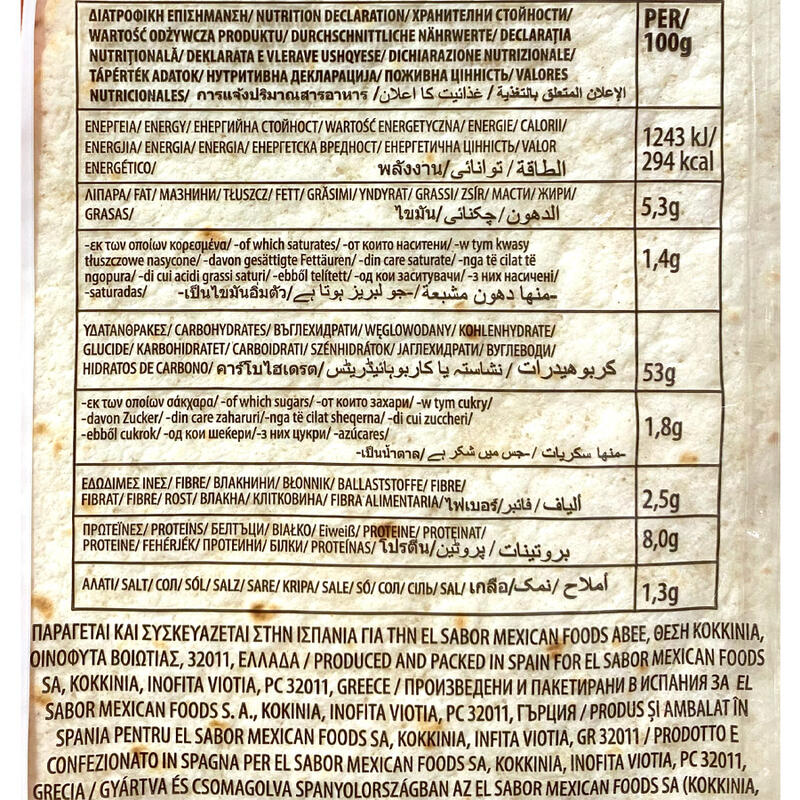 ΔΙΑΤΡΟΦΙΚΗ ΕΠΙΣΗΜΑΝΣΗ/ NUTRITION DECLARATION/ ХРАНИТЕЛНИ СТОЙНОСТИ/
WARTOŚĆ ODŻYWCZA PRODUKTU/ DURCHSCHNITTLICHE NÄHRWERTE/ DECLARAȚIA
NUTRIȚIONALĂ/ DEKLARATA E VLERAVE USHQYESE/ DICHIARAZIONE NUTRIZIONALE/
TÁPÉRTÉK ADATOK/ НУТРИТИВНА ДЕКЛАРАЦИЈА/ ПОЖИВНА ЦІННІСТЬ/ VALORES
NUTRICIONALES/ การแจ้งปริมาณสารอาหาร /الإعلان المتعلق بالتغذية / غذائیت کا اعلان
PER/
100g
ΕΝΕΡΓΕΙΑ/ ENERGY/ ЕНЕРГИЙНА СТОЙНОСТ/ WARTOŚĆ ENERGETYCZNA/ ENERGIE/ CALORII/
ENERGJIA/ ENERGIA/ ENERGIA/ ЕНЕРГЕТСКА ВРЕДНОСТ/ ЕНЕРГЕТИЧНА ЦІННІСТЬ/ VALOR
ENERGÉTICO/ พลังงาน/الطاقة / توانائی
1243 kJ/
294 kcal
ΛΙΠΑΡΑ/ FAT/ МАЗНИНИ/ TŁUSZCZ/ FETT/ GRĂSIMI/ YNDYRAT/ GRASSI/ ZSÍR/ МАСТИ/ ЖИРИ/
GRASAS/ ไขมัน/الدهون / چکنائی
5,3g
-εκ των οποίων κορεσμένα/ -of which saturates/ -от които наситени/ -w tym kwasy
tłuszczowe nasycone/ -davon gesättigte Fettäuren/ -din care saturate/ -nga të cilat të
ngopura/ -di cui acidi grassi saturi/ -ebből telített/ -од кои заситувачи/ -з них насичені/
-saturadas/ -เป็นไขมันอิ่มตัว/-منها دهون مشبعة/-جو لبریز ہوتا ہے
1,4g
ΥΔΑΤΑΝΘΡΑΚΕΣ/ CARBOHYDRATES/ ВЪГЛЕХИДРАТИ/ WĘGLOWODANY/ KOHLENHYDRATE/
GLUCIDE/ KARBOHIDRATET/ CARBOIDRATI/ SZÉNHIDRÁTOK/ ЈАГЛЕХИДРАТИ/ ВУГЛЕВОДИ/
HIDRATOS DE CARBONO/ คาร์โบไฮเดรต/كربوهيدرات / نشاستہ یا کاربوہائیڈریٹس
53g
-εκ των οποίων σάκχαρα/ -of which sugars/ -от които захари/ -w tym cukry/
-davon Zucker/ -din care zaharuri/-nga të cilat sheqerna/ -di cui zuccheri/
-ebből cukrok/ -од кои шеќери/-з них цукри/ -azúcares/
-เป็นน้ำตาล/-منها سكريات /-جس میں شکر ہے
1,8g
ΕΔΩΔΙΜΕΣ ΙΝΕΣ/ FIBRE/ ВЛАКНИНИ/ BŁONNIK/ BALLASTSTOFFE/ FIBRE/
FIBRAT/ FIBRE/ ROST/ ВЛАКНА/ КЛІТКОВИНА/ FIBRA ALIMENTARIA/ไฟเบอร์/ألياف / فائبر
2,5g
ΠΡΩΤΕΪΝΕΣ/ PROTEINS/ БЕЛТЪЦИ/ BIAŁKO/ Eiweiß/ PROTEINE/ PROTEINAT/
PROTEINE/ FEHÉRJÉK/ ПРОТЕИНИ/ БІЛКИ/ PROTEÍNAS/ โปรตีน/بروتينات / پروٹین
8,0g
ΑΛΑΤΙ/ SALT/ СОЛ/ SÓL/ SALZ/ SARE/ KRIPA/ SALE/ SÓ/ СОЛ/ СІЛЬ/ SAL/ เกลือ/أملاح / نمک
1,3g
ΠΑΡΑΓΕΤΑΙ ΚΑΙ ΣΥΣΚΕΥΑΖΕΤΑΙ ΣΤΗΝ ΙΣΠΑΝΙΑ ΓΙΑ ΤΗΝ EL SABOR MEXICAN FOODS ΑΒΕΕ, ΘΕΣΗ ΚΟΚΚΙΝΙΑ,
ΟΙΝΟΦΥΤΑ ΒΟΙΩΤΙΑΣ, 32011, ΕΛΛΑΔΑ / PRODUCED AND PACKED IN SPAIN FOR EL SABOR MEXICAN FOODS
SA, KOKKINIA, INOFITA VIOTIA, PC 32011, GREECE / ПРОИЗВЕДЕНИ И ПАКЕТИРАНИ В ИСПАНИЯ ЗА EL
SABOR MEXICAN FOODS S. A., KOKINIA, INOFITA VIOTIA, PC 32011, ГЪРЦИЯ / PRODUS ȘI AMBALAT ÎN
SPANIA PENTRU EL SABOR MEXICAN FOODS SA, KOKKINIA, INFITA VIOTIA, GR 32011 / PRODOTTO E
CONFEZIONATO IN SPAGNA PER EL SABOR MEXICAN FOODS SA, KOKKINIA, INOFITA VIOTIA, PC 32011,
GRECIA / GYÁRTVA ÉS CSOMAGOLVA SPANYOLORSZÁGBAN AZ EL SABOR MEXICAN FOODS SA (KOKKINIA,